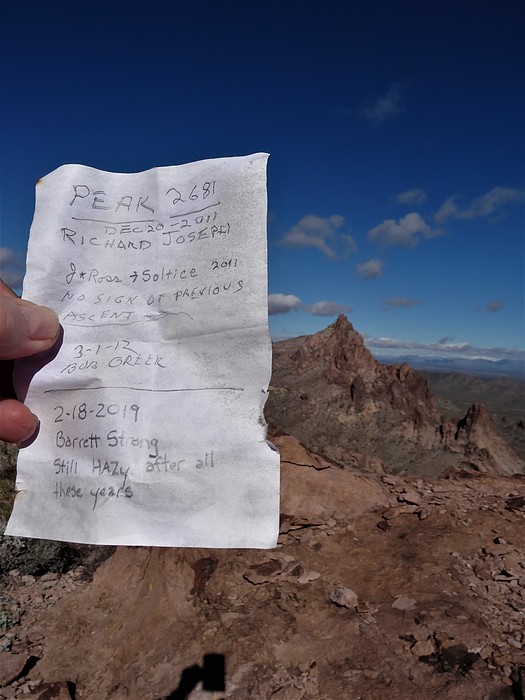 PEAK 2681
DEC 20-2011
RICHARD JOSEPH
J*Ross → Soltice 2011
NO SIGN OF PREVIOUS
ASCENT
3-1-12
BOB GREEK
2-18-2019
Barrett Strong
Still HAZy after all
these years